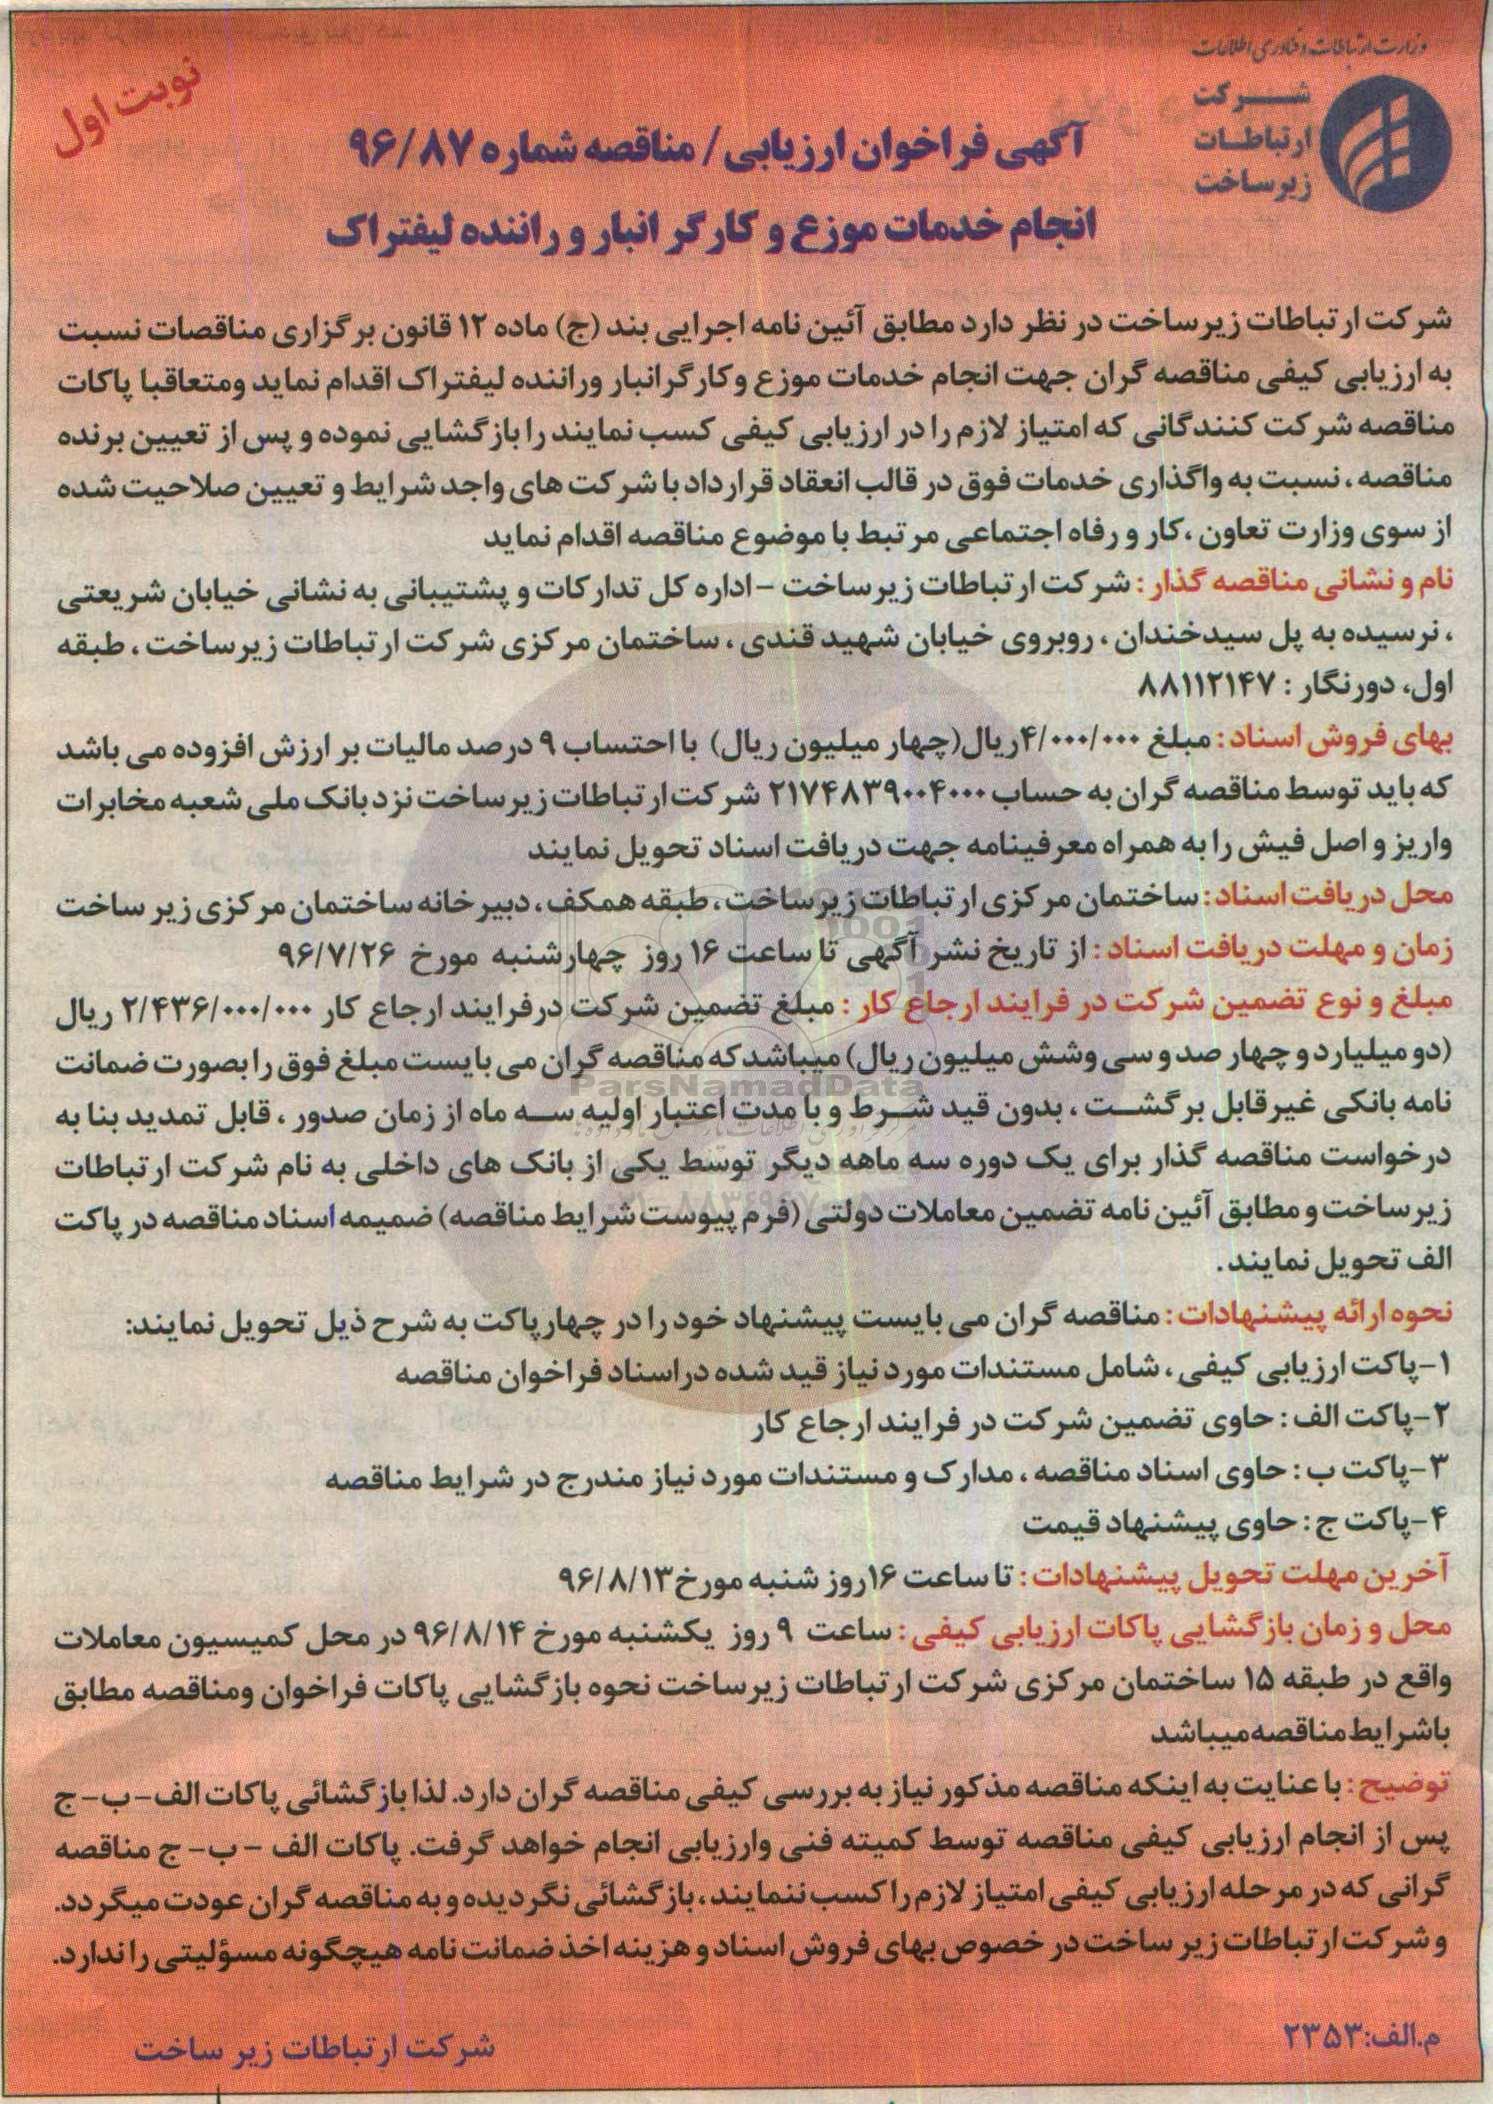 وزارت ارتباطات و فناوری اطلاعات
شرکت
ارتباطات
زیرساخت
نوبت اول
آگهی فراخوان ارزیابی / مناقصه شماره ۹۶/۸۷
انجام خدمات موزع و کارگر انبار و راننده لیفتراک
شرکت ارتباطات زیرساخت در نظر دارد مطابق آئین نامه اجرایی بند (ج) ماده ۱۲ قانون برگزاری مناقصات نسبت
به ارزیابی کیفی مناقصه گران جهت انجام خدمات موزع وکارگرانبار وراننده لیفتراک اقدام نماید ومتعاقبا پاکات
مناقصه شرکت کنندگانی که امتیاز لازم را در ارزیابی کیفی کسب نمایند را بازگشایی نموده و پس از تعیین برنده
مناقصه ، نسبت به واگذاری خدمات فوق در قالب انعقاد قرارداد با شرکت های واجد شرایط و تعیین صلاحیت شده
از سوی وزارت تعاون ،کار و رفاه اجتماعی مرتبط با موضوع مناقصه اقدام نماید
نام و نشانی مناقصه گذار : شرکت ارتباطات زیرساخت -اداره کل تدارکات و پشتیبانی به نشانی خیابان شریعتی
، نرسیده به پل سیدخندان ، روبروی خیابان شهید قندی ، ساختمان مرکزی شرکت ارتباطات زیرساخت ، طبقه
اول، دورنگار : ۸۸۱۱۲۱۴۷
بهای فروش اسناد : مبلغ ۴/۰۰۰/۰۰۰ریال(چهار میلیون ریال) با احتساب ۹ درصد مالیات بر ارزش افزوده می باشد
که باید توسط مناقصه گران به حساب ۲۱۷۴۸۳۹۰۰۴۰۰۰ شرکت ارتباطات زیرساخت نزد بانک ملی شعبه مخابرات
واریز و اصل فیش را به همراه معرفینامه جهت دریافت اسناد تحویل نمایند
محل دریافت اسناد : ساختمان مرکزی ارتباطات زیرساخت ، طبقه همکف ، دبیرخانه ساختمان مرکزی زیر ساخت
زمان و مهلت دریافت اسناد : از تاریخ نشر آگهی تا ساعت ۱۶ روز چهارشنبه مورخ ۹۶/۷/۲۶
مبلغ و نوع تضمین شرکت در فرایند ارجاع کار : مبلغ تضمین شرکت درفرایند ارجاع کار ۲/۴۳۶/۰۰۰/۰۰۰ ریال
(دو میلیارد و چهار صد و سی وشش میلیون ریال) میباشد که مناقصه گران می بایست مبلغ فوق را بصورت ضمانت
ParsNamadData
نامه بانکی غیرقابل برگشت ، بدون قید شرط و با مدت اعتبار اولیه سه ماه از زمان صدور ، قابل تمدید بنا به
درخواست مناقصه گذار برای یک دوره سه ماهه دیگر توسط یکی از بانک های داخلی به نام شرکت ارتباطات
زیرساخت و مطابق آئین نامه تضمین معاملات دولتی (فرم پیوست شرایط مناقصه) ضمیمه اسناد مناقصه در پاکت
الف تحویل نمایند.
نحوه ارائه پیشنهادات : مناقصه گران می بایست پیشنهاد خود را در چهارپاکت به شرح ذیل تحویل نمایند:
۱-پاکت ارزیابی کیفی ، شامل مستندات مورد نیاز قید شده دراسناد فراخوان مناقصه
۲-پاکت الف : حاوی تضمین شرکت در فرایند ارجاع کار
۳-پاکت ب : حاوی اسناد مناقصه ، مدارک و مستندات مورد نیاز مندرج در شرایط مناقصه
۴-پاکت ج : حاوی پیشنهاد قیمت
آخرین مهلت تحویل پیشنهادات : تا ساعت ۱۶روز شنبه مورخ ۹۶/۸/۱۳
محل و زمان بازگشایی پاکات ارزیابی کیفی : ساعت ۹ روز یکشنبه مورخ ۹۶/۸/۱۴ در محل کمیسیون معاملات
واقع در طبقه ۱۵ ساختمان مرکزی شرکت ارتباطات زیرساخت نحوه بازگشایی پاکات فراخوان ومناقصه مطابق
باشرایط مناقصه میباشد
توضیح : با عنایت به اینکه مناقصه مذکور نیاز به بررسی کیفی مناقصه گران دارد. لذا بازگشائی پاکات الف- ب- ج
پس از انجام ارزیابی کیفی مناقصه توسط کمیته فنی وارزیابی انجام خواهد گرفت. پاکات الف - ب- ج مناقصه
گرانی که در مرحله ارزیابی کیفی امتیاز لازم را کسب ننمایند ، بازگشائی نگردیده و به مناقصه گران عودت میگردد.
و شرکت ارتباطات زیر ساخت در خصوص بهای فروش اسناد و هزینه اخذ ضمانت نامه هیچگونه مسؤلیتی را ندارد.
م.الف:۲۳۵۳
شرکت ارتباطات زیر ساخت